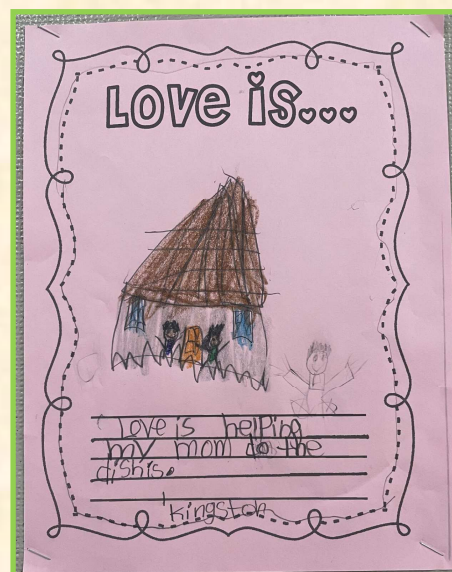 LOVE is...
Love is helping
my mom do the
dishis.
Kingston